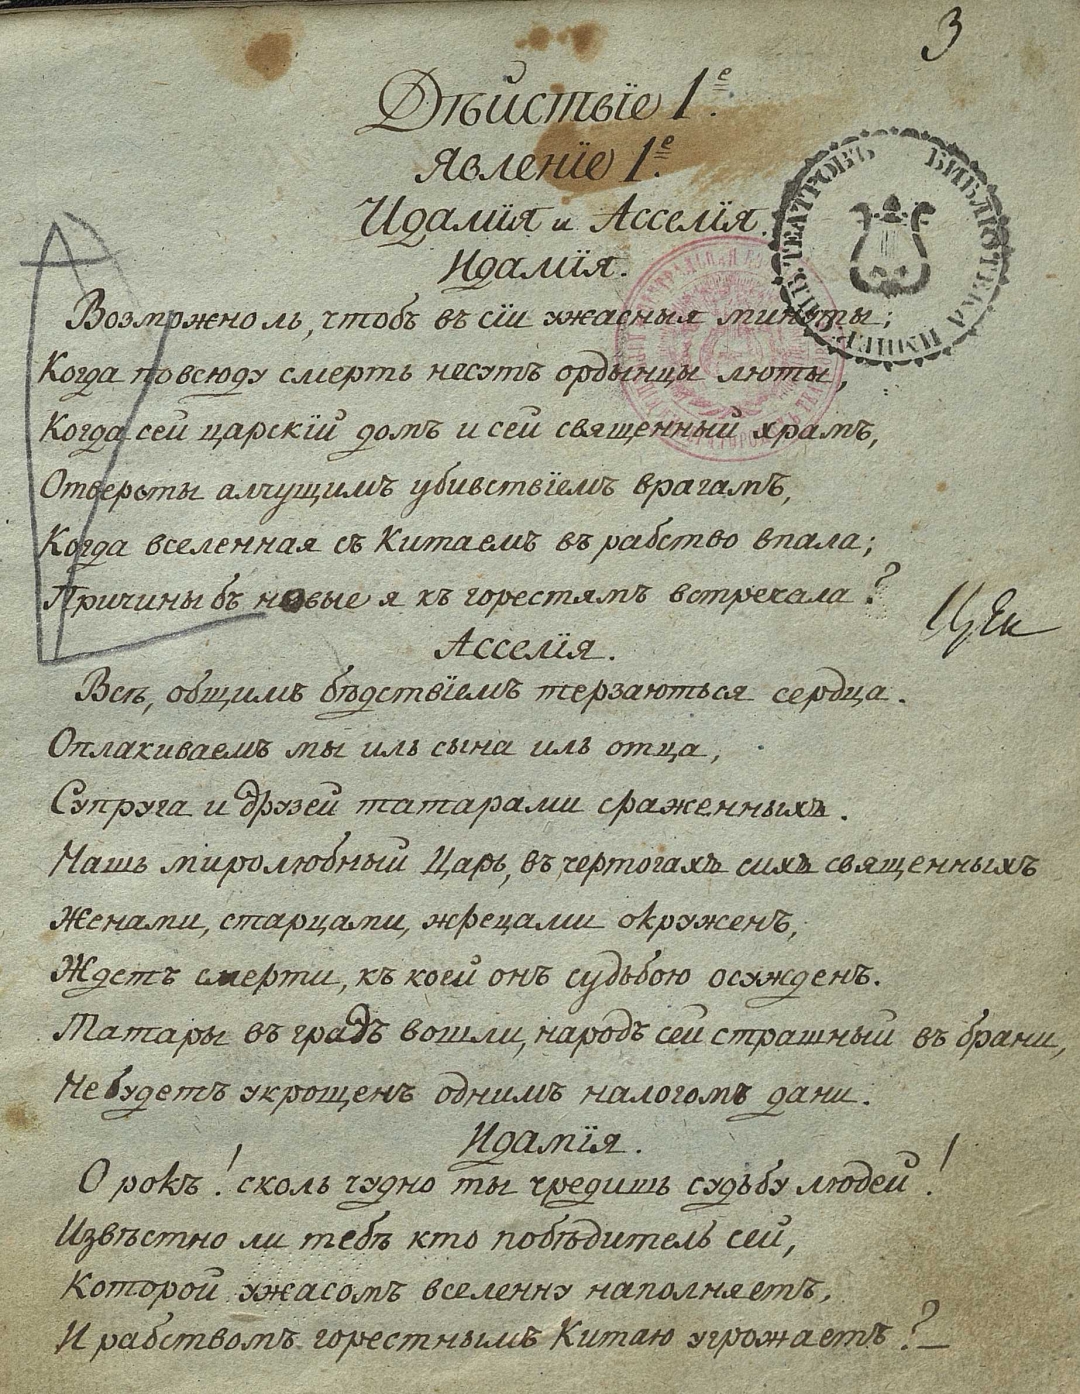 3
Дѣйствїе 1е.
Явленїе 1е.
Идамїя и Асселїя.
Идамїя.
Возможно ль, чтобъ въ сїи ужасныя минуты;
Когда повсюду смерть несутъ ордынцы люты,
Когда сей царскїй домъ и сей священный храмъ,
Отверсты алчущимъ убивствїемъ врагамъ,
Когда вселенная съ Китаемъ въ рабство впала;
Причины бъ новые я къ горестямъ встречала?
Асселїя.
Всѣ, общимъ бѣдствїемъ терзаються сердца.
Оплакиваемъ мы иль сына иль отца,
Супруга и друзей татарами сраженныхъ.
Нашь миролюбный Царь, въ чертогахъ сихъ священныхъ
Женами, старцами, жрецами окруженъ,
Ждетъ смерти, къ коей онъ судьбою осужденъ.
Татары въ градъ вошли, народъ сей страшный въ брани,
Не будетъ укрощенъ однимъ налогомъ дани.
Идамїя.
О рокъ! сколь чудно ты чредишь судьбу людей!
Извѣстно ли тебѣ кто побѣдитель сей,
Которой ужасомъ вселенну наполняетъ,
И рабствомъ горестнымъ Китаю угрожаетъ? —
БИБЛІОТЕКА ИМПЕР. СПБ. ТЕАТРОВЪ